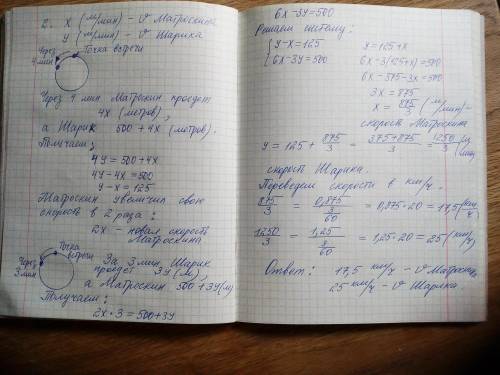 2. X (м/мин) – υ Матроскина
У (м/мин) – υ Шарика
Через 4 мин
Точка встречи
Через 4 мин Матроскин пройдет
4X (метров),
а Шарик 500 + 4X (метров).
Получаем:
4У = 500 + 4X
4У – 4X = 500
У – X = 125
Матроскин увеличил свою
скорость в 2 раза:
2X – новая скорость
Матроскина
Через 3 мин
Точка встречи
За 3 мин Шарик
пройдет 3У (м),
а Матроскин 500 + 3У (м)
Получаем:
2X · 3 = 500 + 3У
6X – 3У = 500
Решаем систему:
{ У – X = 125
{ 6X – 3У = 500
У = 125 + X
6X – 3(125 + X) = 500
6X – 375 – 3X = 500
3X = 875
X = 875/3 (м/мин) –
скорость Матроскина
У = 125 + 875/3 = 375+875/3 = 1250/3 (м/мин)
скорость Шарика.
Переведем скорости в км/ч.
875/3 = 0,875/(3/60) = 0,875 · 20 = 17,5 (км/ч)
1250/3 = 1,25/(3/60) = 1,25 · 20 = 25 (км/ч)
Ответ: 17,5 км/ч – υ Матроскина
25 км/ч – υ Шарика